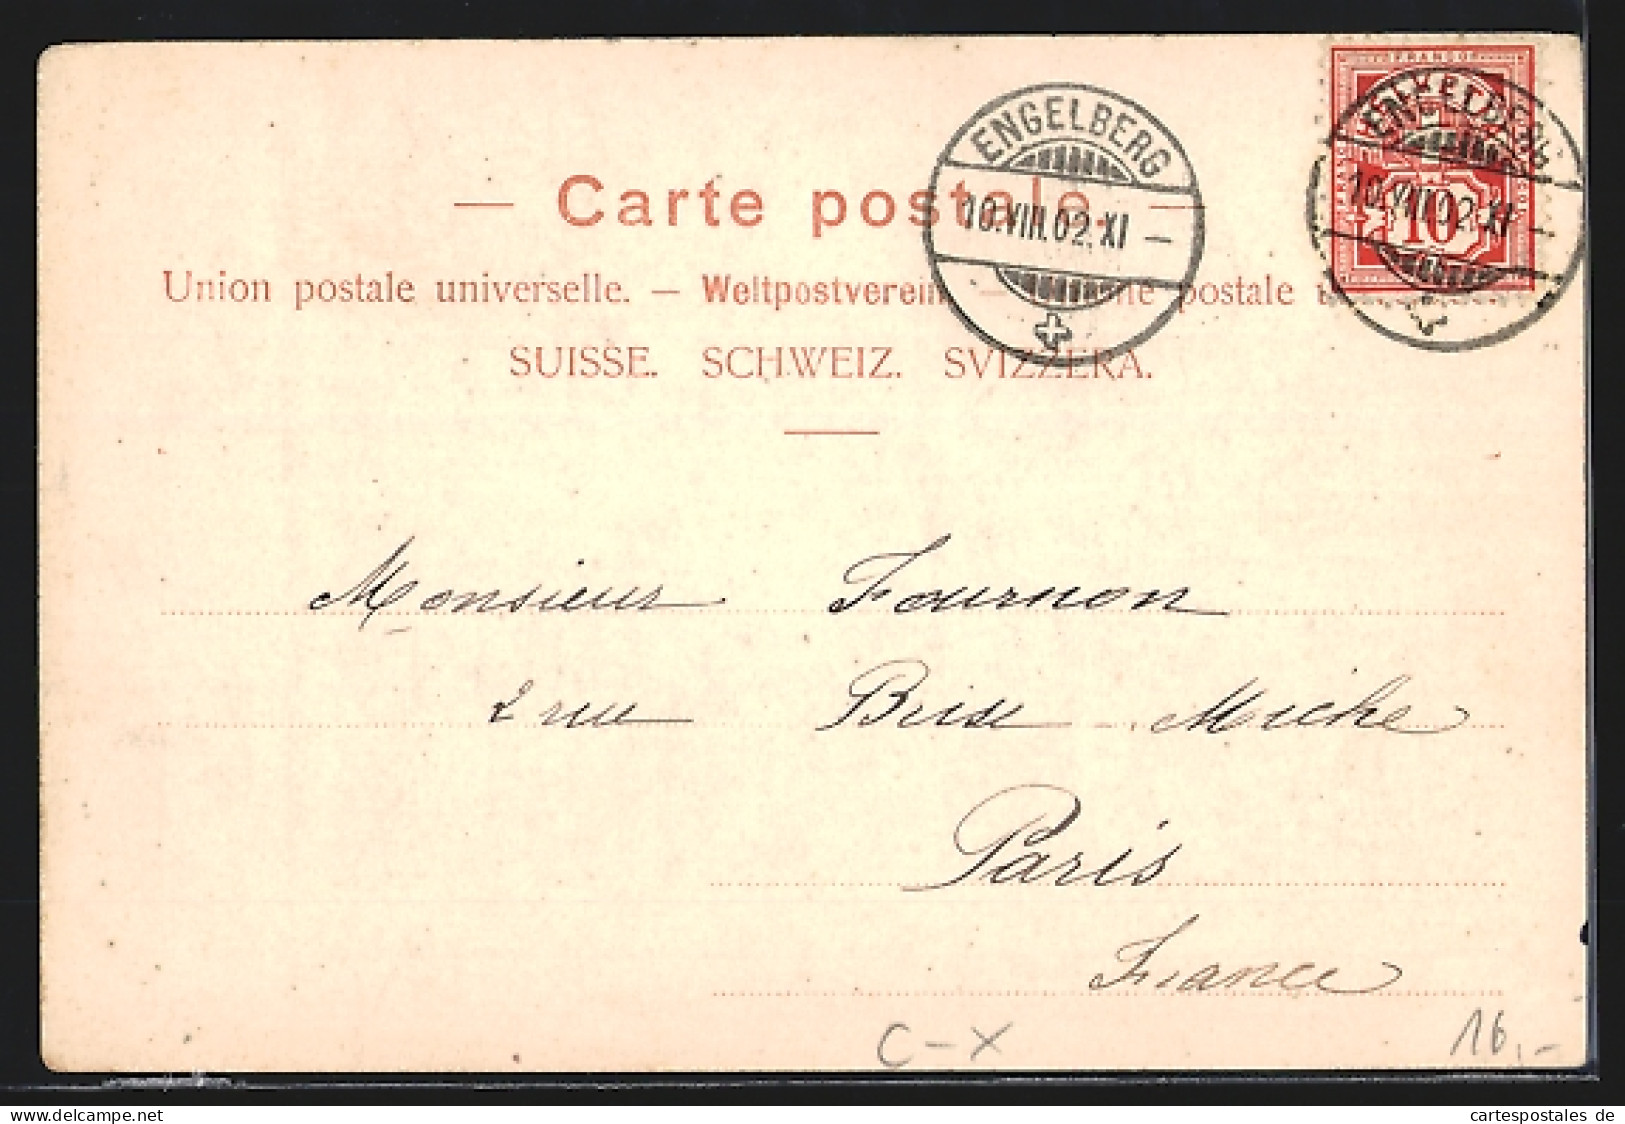 — Carte postale —
Union postale universelle. — Weltpostverein. — postale
SUISSE. SCHWEIZ. SVIZZERA.
ENGELBERG
10.VIII.02.XI —
FRANCO
ENGELBERG
10.VIII.02.XI —
10
Monsieur Fournon
2 rue Brise Miche
Paris
France
C-X
16,-
delcampe.net
cartespostales de